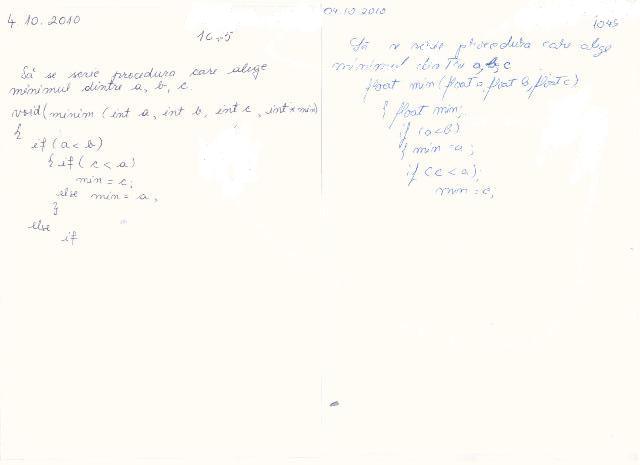 4 10. 2010
10:5
Să se scrie procedura care alege
minimul dintre a, b, c.
void(minim (int a, int b, int c, int *min)
{
if (a < b)
{ if ( c < a)
min = c;
else min = a,
}
else
if
04.10.2010
1045
Să se scrie procedura care alege
minimul dintre a, b, c
float min (float a, float b, float c)
{ float min;
if (a<b)
{ min = a;
if (c < a);
min = c;